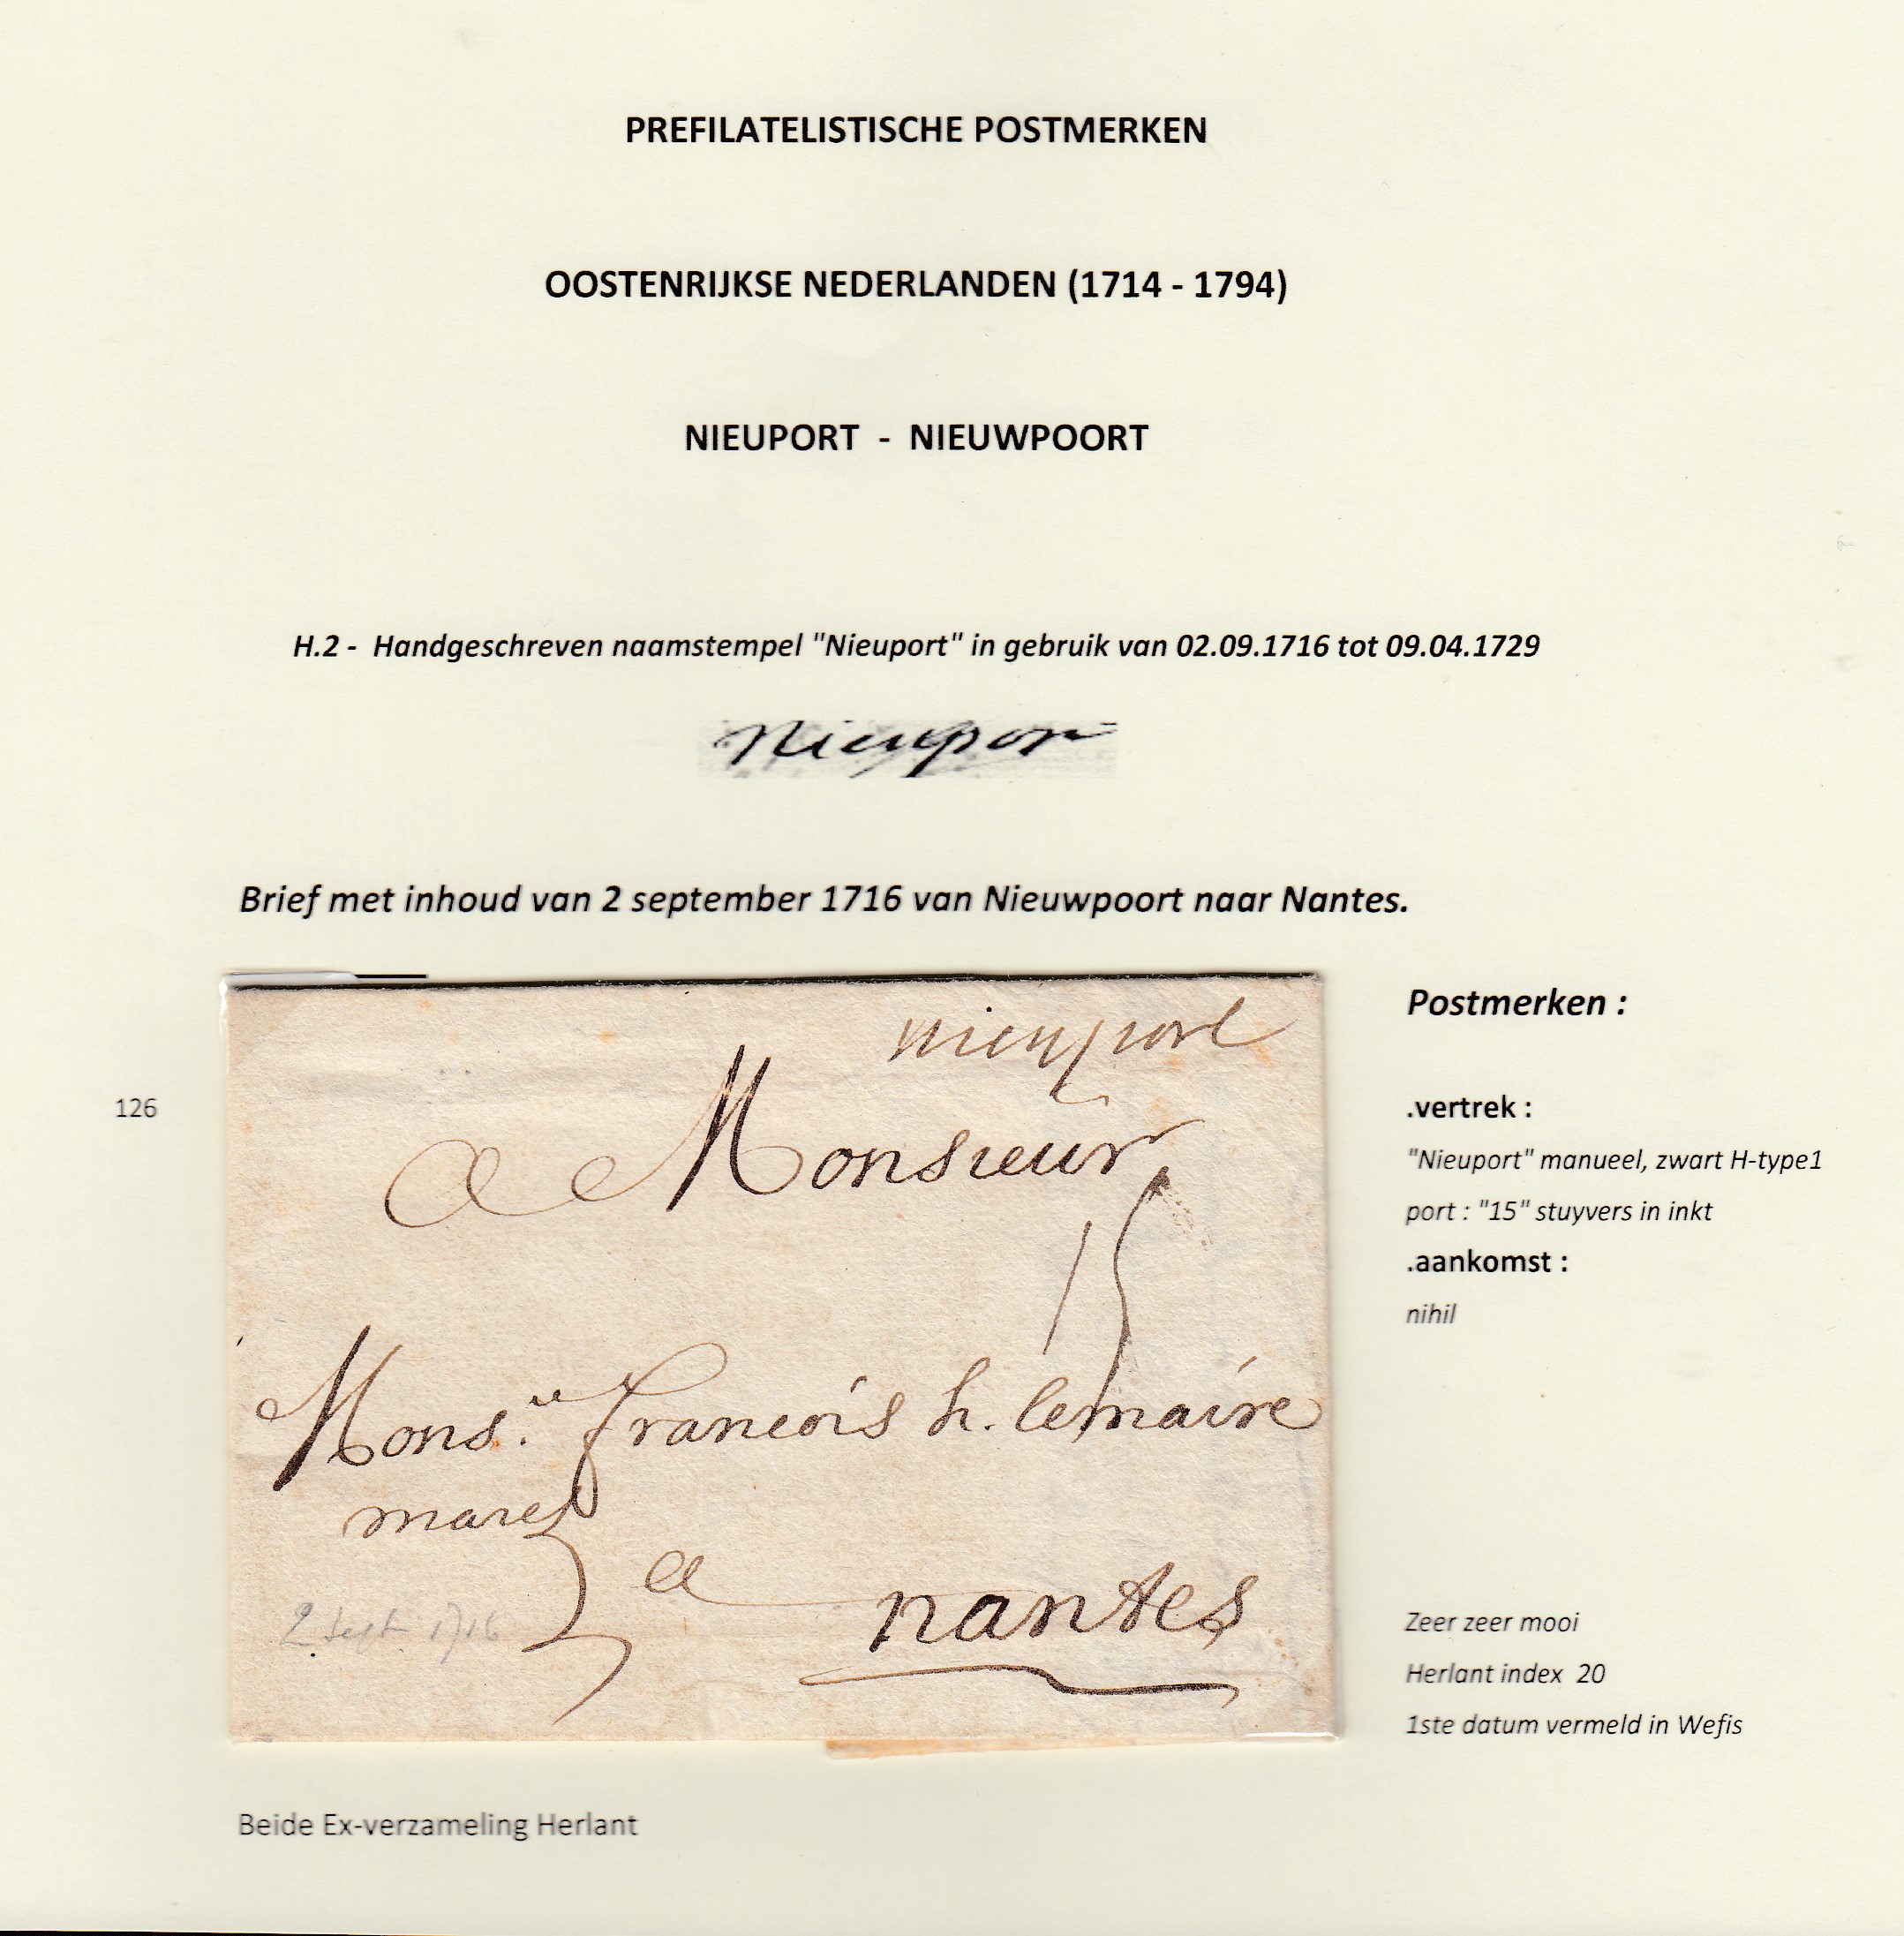 PREFILATELISTISCHE POSTMERKEN
OOSTENRIJKSE NEDERLANDEN (1714 - 1794)
NIEUPORT - NIEUWPOORT
H.2 - Handgeschreven naamstempel "Nieuport" in gebruik van 02.09.1716 tot 09.04.1729
Nieuport
Brief met inhoud van 2 september 1716 van Nieuwpoort naar Nantes.
nieuport
a Monsieur
15
Mons.r francois h. lemaire
a nantes
2 Sept. 1716
126
Postmerken :
.vertrek :
"Nieuport" manueel, zwart H-type1
port : "15" stuyvers in inkt
.aankomst :
nihil
Zeer zeer mooi
Herlant index 20
1ste datum vermeld in Wefis
Beide Ex-verzameling Herlant